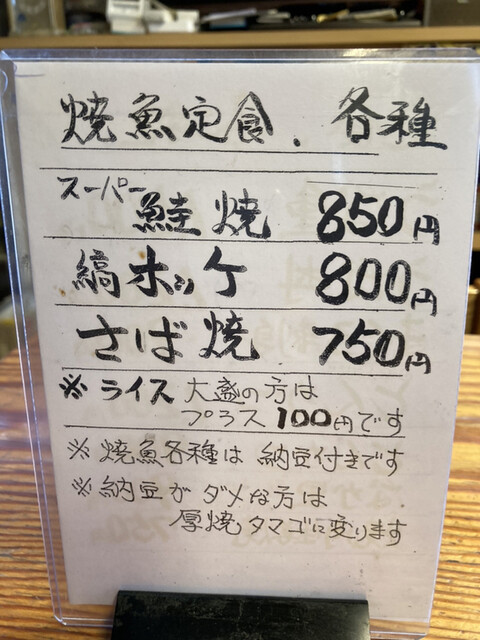 焼魚定食、各種
スーパー鮭焼 850円
縞ホッケ 800円
さば焼 750円
※ライス 大盛の方は
プラス100円です
※焼魚各種は 納豆付きです
※納豆が ダメな方は
厚焼タマゴに変ります